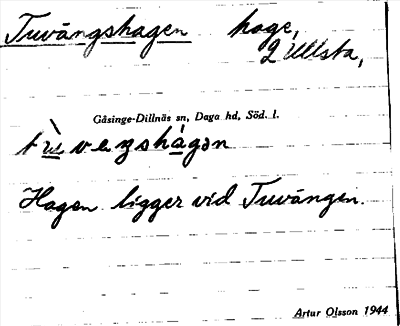 Tuvängshagen hage,
2 Ullsta,
Gåsinge-Dillnäs sn, Daga hd, Söd. l.
Hagen ligger vid Tuvängen.
Artur Olsson 1944